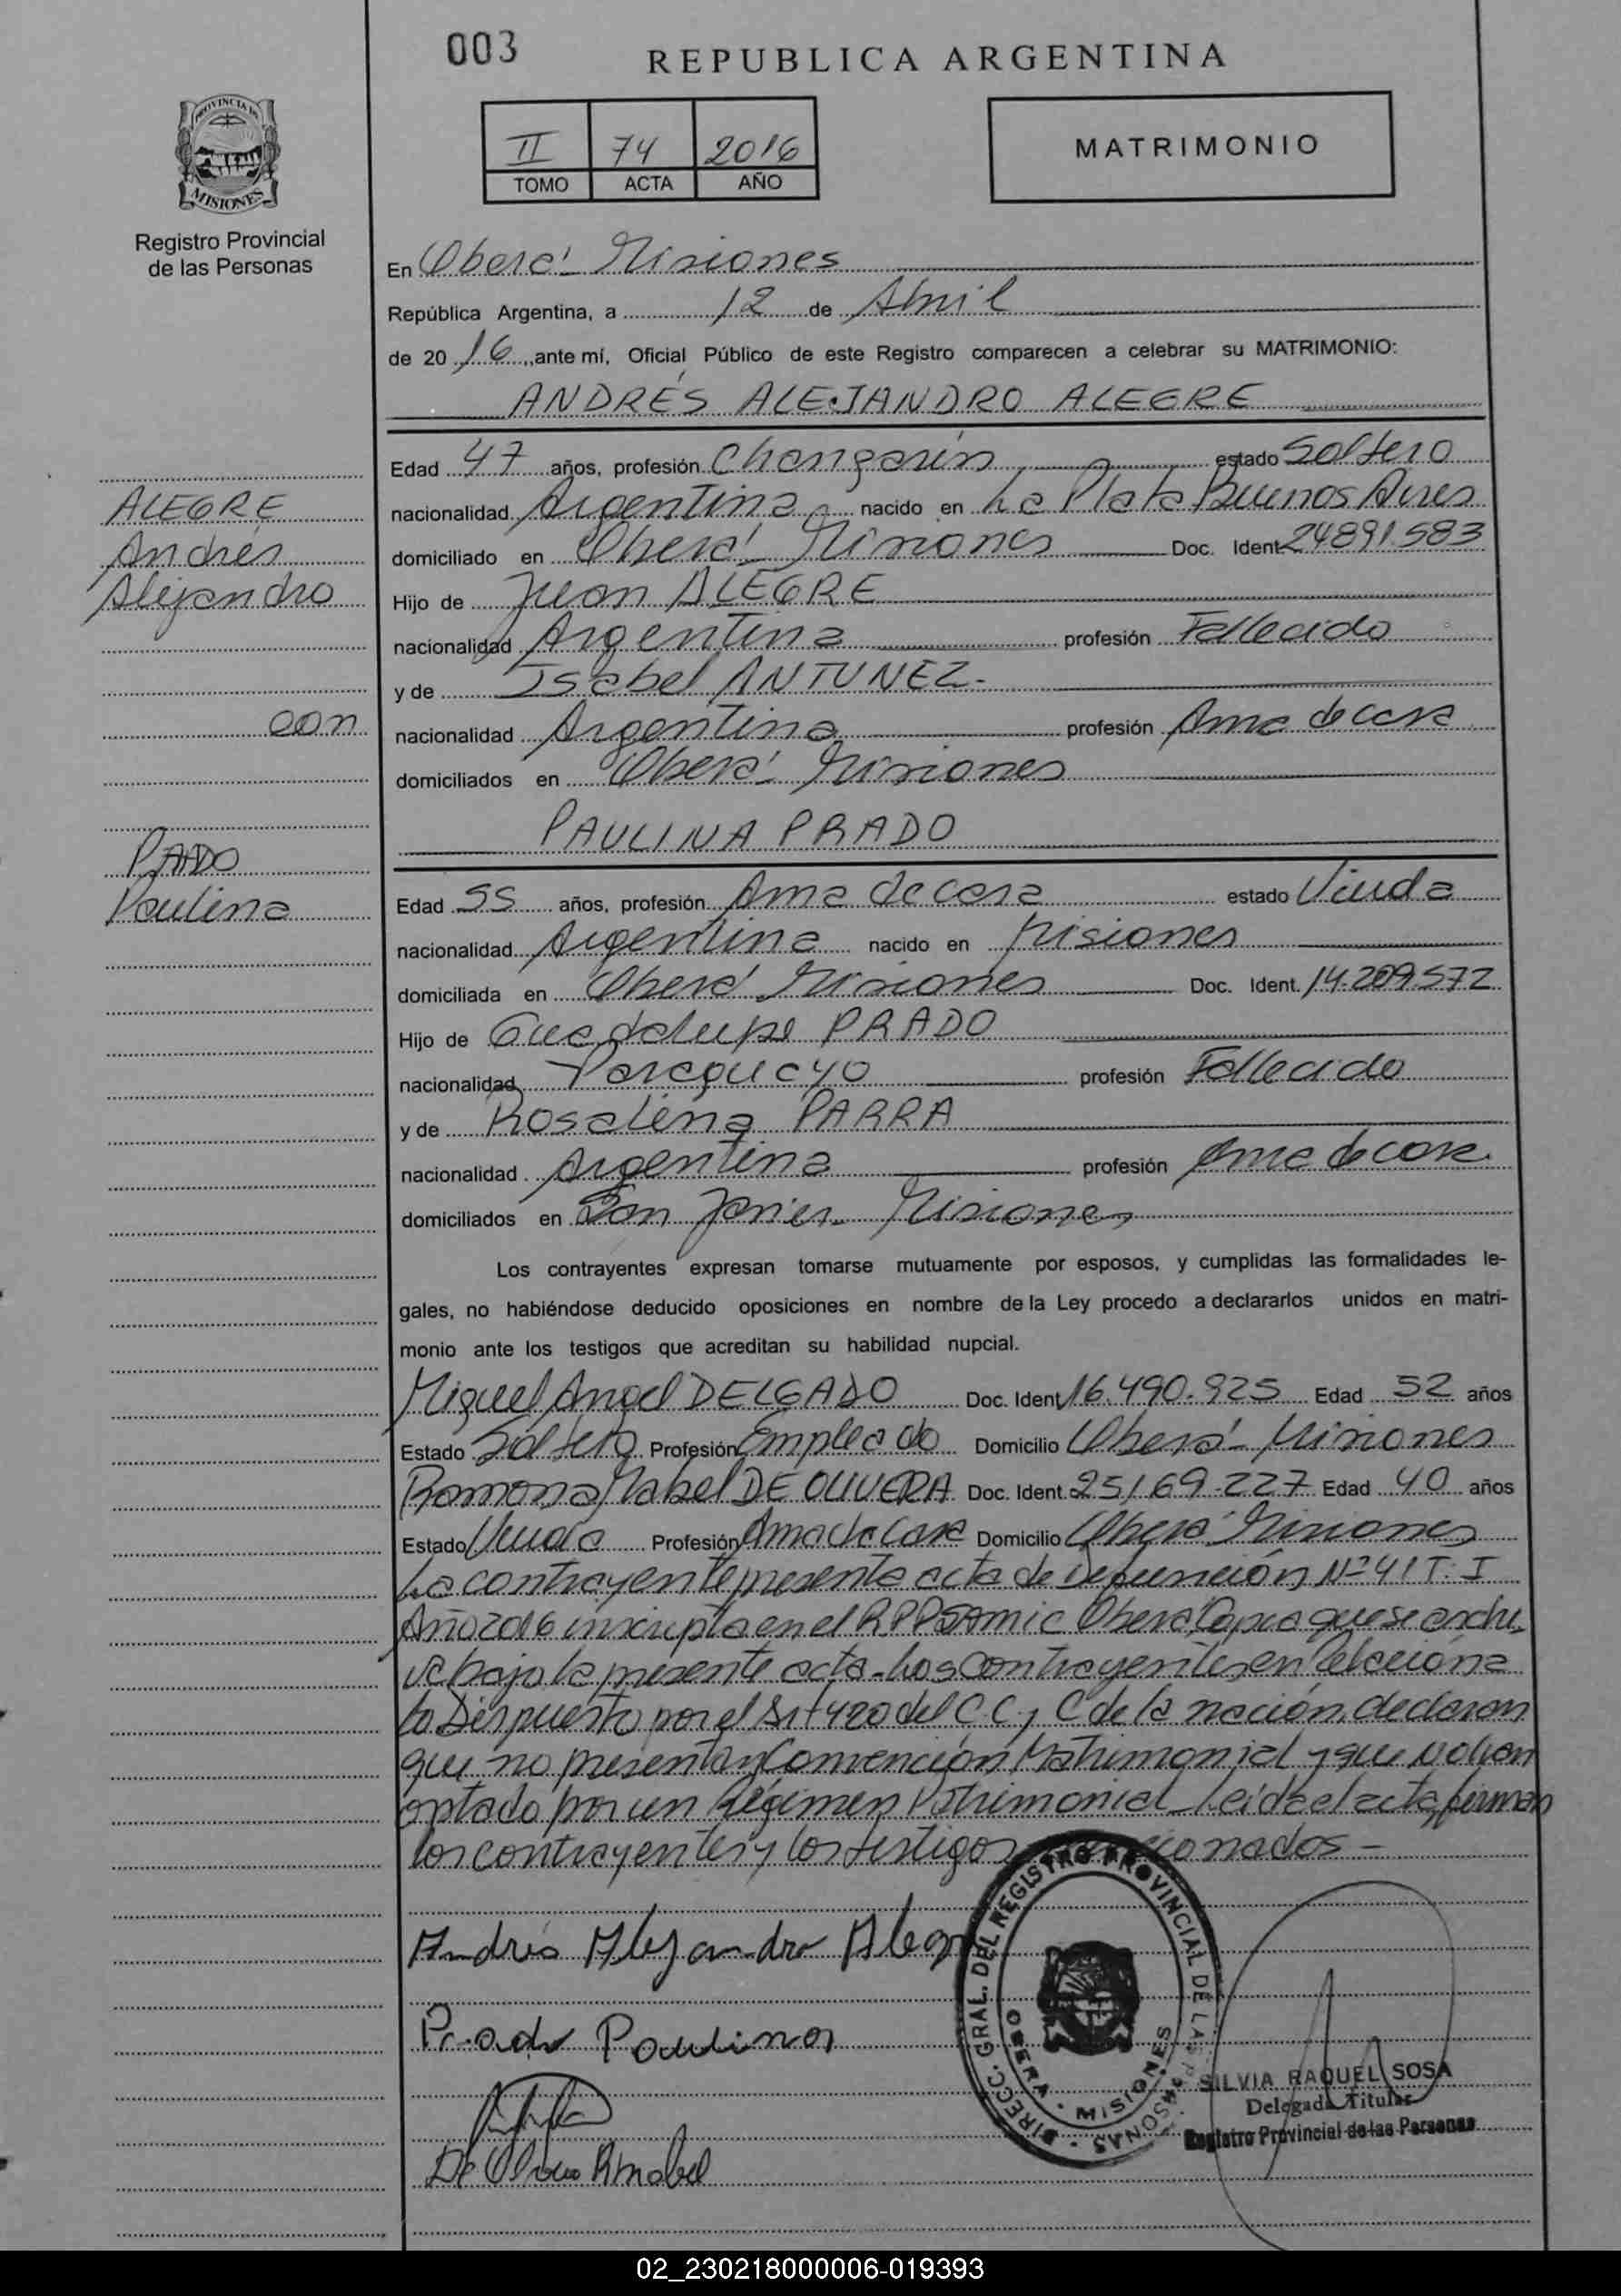 003
REPUBLICA ARGENTINA
PROVINCIA DE
MISIONES
Registro Provincial
de las Personas
II 74 2016
TOMO ACTA AÑO
MATRIMONIO
En Oberá - Misiones
República Argentina, a 12 de Abril
de 20 16, ante mí, Oficial Público de este Registro comparecen a celebrar su MATRIMONIO:
ANDRÉS ALEJANDRO ALEGRE
Edad 47 años, profesión Changarín estado Soltero
ALEGRE
Andrés
Alejandro
nacionalidad Argentina nacido en La Plata Buenos Aires
domiciliado en Oberá - Misiones Doc. Ident 24891.583
Hijo de Juan ALEGRE
nacionalidad Argentina profesión Fallecido
y de Isabel ANTUNEZ.-
con
nacionalidad Argentina profesión Ama de casa
domiciliados en Oberá - Misiones
PAULINA PRADO
PRADO
Paulina
Edad 55 años, profesión Ama de casa estado Viuda
nacionalidad Argentina nacido en Misiones
domiciliada en Oberá Misiones Doc. Ident. 14.209.572
Hijo de Guadalupe PRADO
nacionalidad Paraguayo profesión Fallecido
y de Rosalina PARRA
nacionalidad Argentina profesión Ama de casa.
domiciliados en San Javier - Misiones
Los contrayentes expresan tomarse mutuamente por esposos, y cumplidas las formalidades le-
gales, no habiéndose deducido oposiciones en nombre de la Ley procedo a declararlos unidos en matri-
monio ante los testigos que acreditan su habilidad nupcial.
Miguel Angel DELGADO Doc. Ident 16.490.925 Edad 52 años
Estado Soltero Profesión Empleado Domicilio Oberá - Misiones
Ramona Mabel DE OLIVERA Doc. Ident. 25169.227 Edad 40 años
Estado Viuda Profesión Ama de Casa Domicilio Oberá - Misiones
La contrayente presenta acta de Defunción Nº 41 T. I
Año 2016 inscripta en el R.P.P SAMIC Oberá Copia que se archi
va bajo la presente acta - Los contrayentes en Relación a
lo Dispuesto por el Art 420 del C.C. y C de la nación, declaran
que no presentan Convención Matrimonial y que no han
optado por un Régimen Patrimonial - Leída el acta, firman
los contrayentes y los testigos
Andrés Alejandro Alegr
Prado Paulina
De Olivera R mabel
DIRECC. GRAL. DEL REGISTRO PROVINCIAL DE LAS PERSONAS
OBERA - MISIONES
SILVIA RAQUEL SOSA
Delegada Titular
Registro Provincial de las Personas
02_230218000006-019393